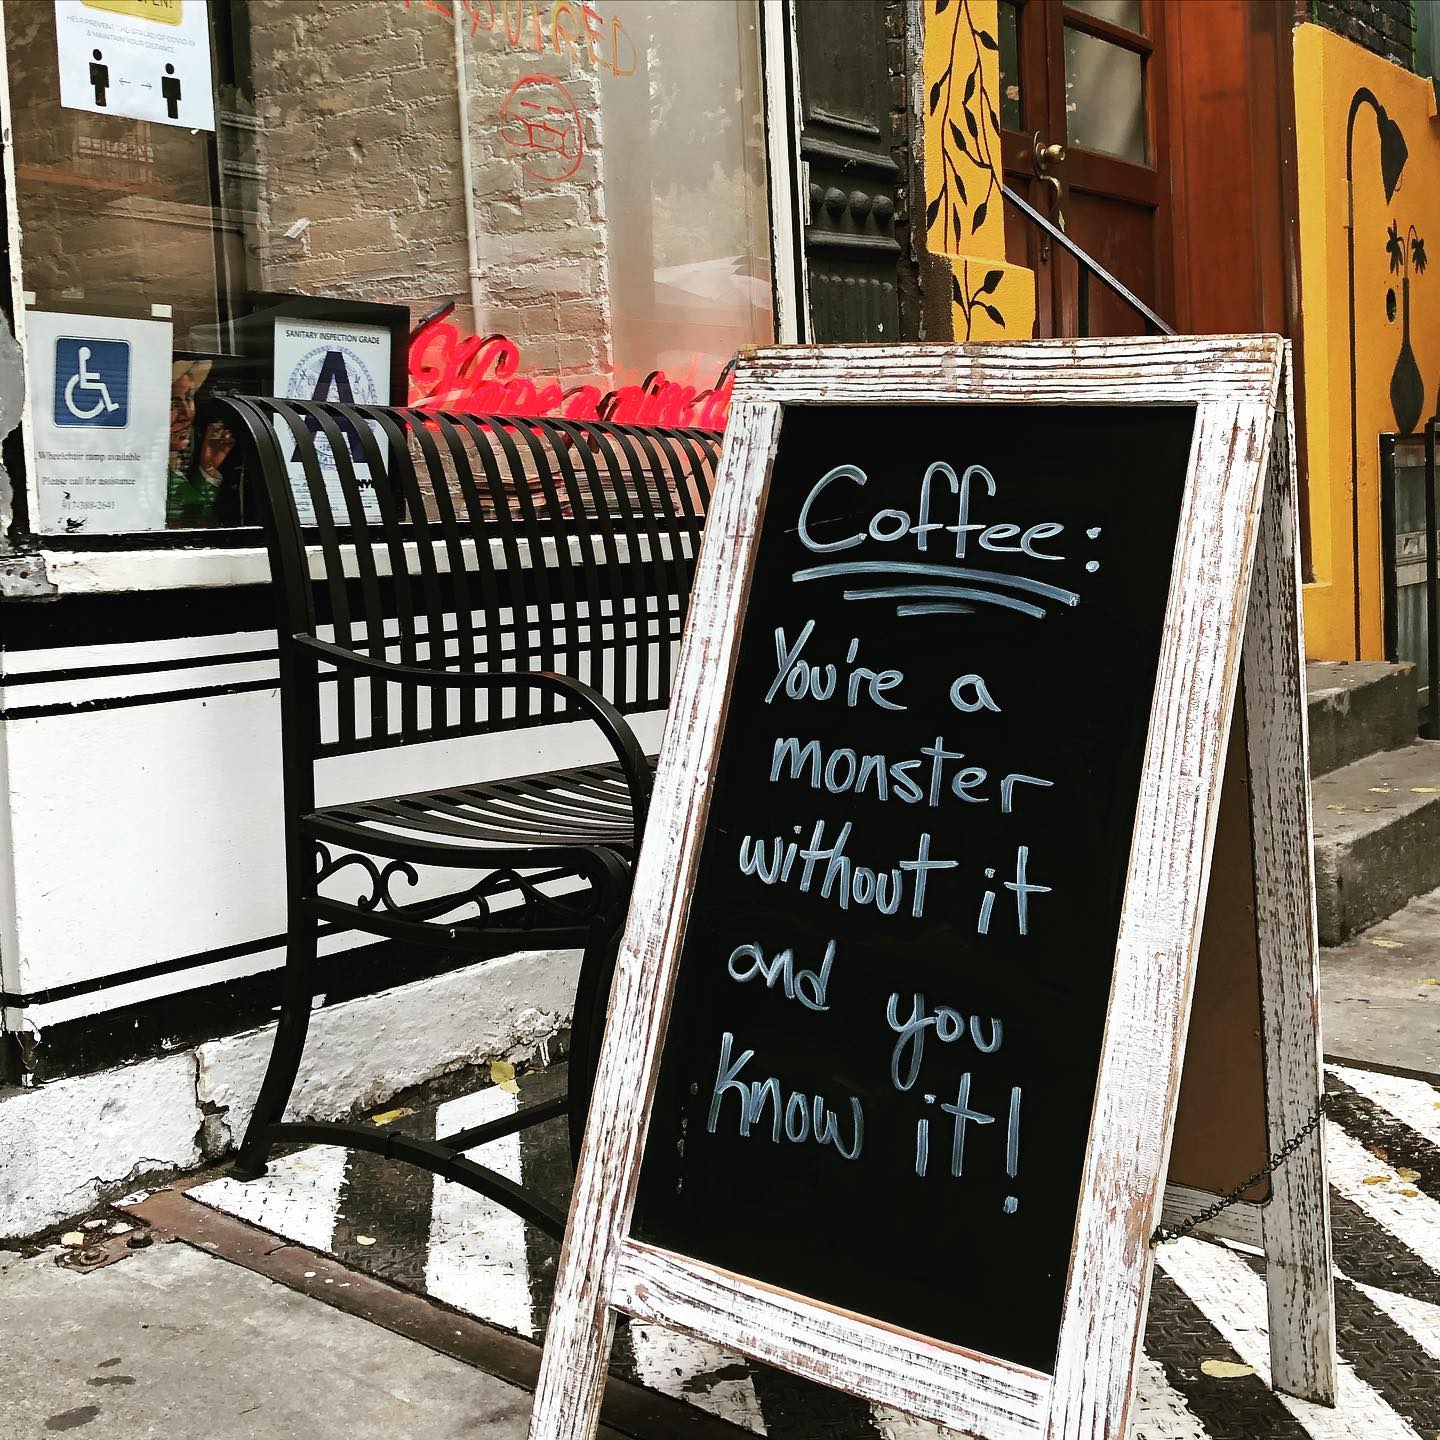 OPEN!
HELP PREVENT THE SPREAD OF COVID-19
& MAINTAIN YOUR DISTANCE.
Wheelchair ramp available
Please call for assistance
917-388-2641
SANITARY INSPECTION GRADE
A
Coffee:
You're a
monster
without it
and you
know it!